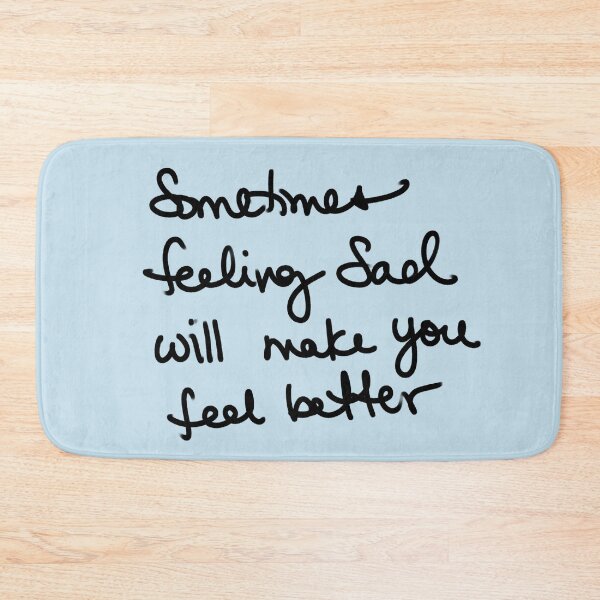 Sometimes
feeling Sad
will make you
feel better